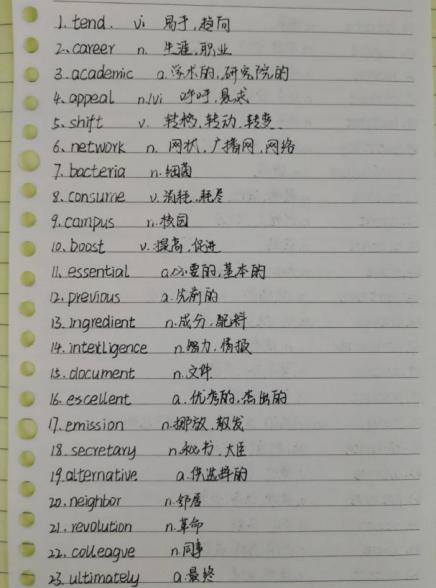 1. tend. vi 易于,趋向
2. career n. 生涯,职业
3. academic a. 学术的,研究院的
4. appeal n/vi 呼吁,恳求
5. shift v. 转换,转动,转变
6. network n. 网状,广播网,网络
7. bacteria n. 细菌
8. consume v. 消耗,耗尽
9. campus n. 校园
10. boost v. 提高,促进
11. essential a. 必要的,基本的
12. previous a. 先前的
13. ingredient n. 成分,配料
14. intelligence n. 智力,情报
15. document n. 文件
16. escellent a. 优秀的,杰出的
17. emission n. 排放,散发
18. secretary n. 秘书,大臣
19. alternative a. 供选择的
20. neighbor n. 邻居
21. revolution n. 革命
22. colleague n. 同事
23. ultimately a. 最终